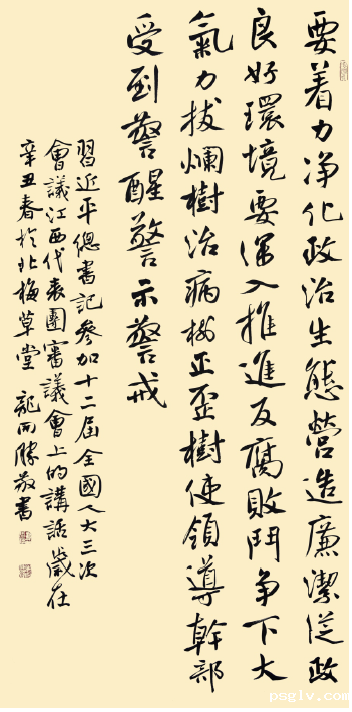 要着力净化政治生態營造廉潔從政
良好環境要深入推進反腐敗鬥争下大
氣力拔爛樹治病樹正歪樹使領導幹部
受到警醒警示警戒
習近平總書記參加十二届全國人大三次
會議江西代表團審議會上的講話歲在
辛丑春於北梅草堂 龍開勝敬書
psglv.com